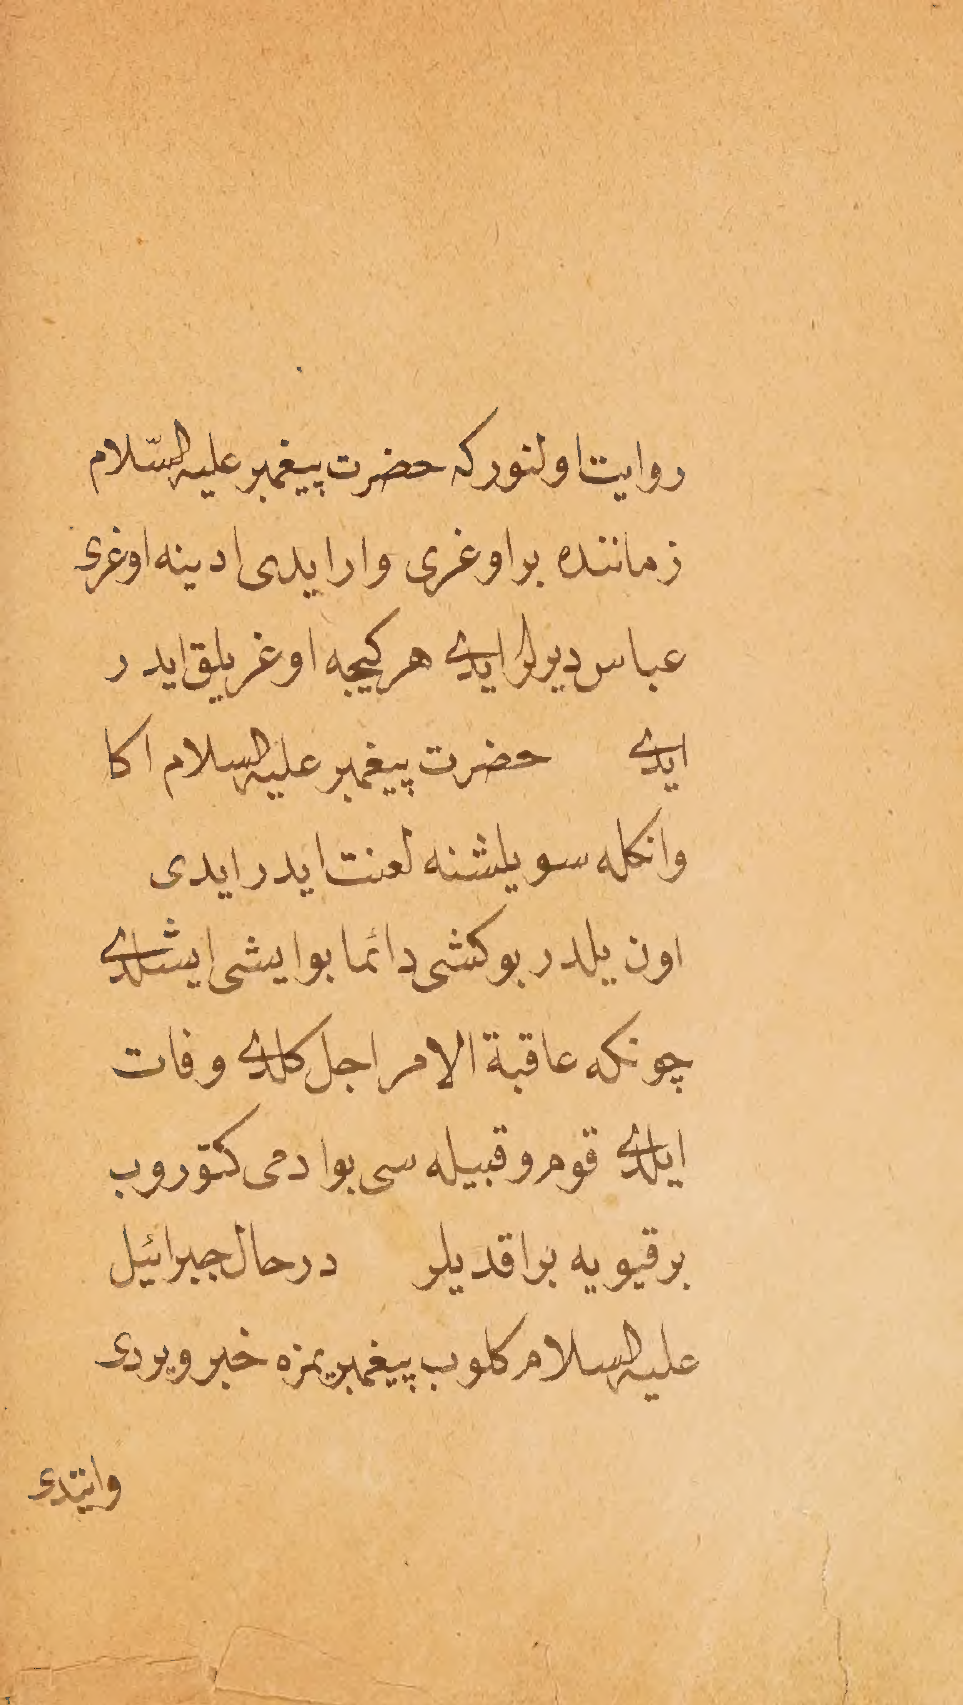 روايت اولنور كه حضرت پيغمبر عليه السّلام
زماننده بر اوغرى وار ايدى ادينه اوغرى
عباس ديرلر ايدى هر كيجه اوغريلق ايدر
ايدى حضرت پيغمبر عليه السلام اكا
وانكله سويلشنه لعنت ايدر ايدى
اون يلدر بو كشى دائما بو ايشى ايشلدى
چونكه عاقبة الامر اجل كلدى وفات
ايلدى قوم وقبيله سى بو ادمى كتوروب
بر قيويه براقديلر درحال جبرائيل
عليه السلام كلوب پيغمبريمزه خبر ويردى
وايتدى